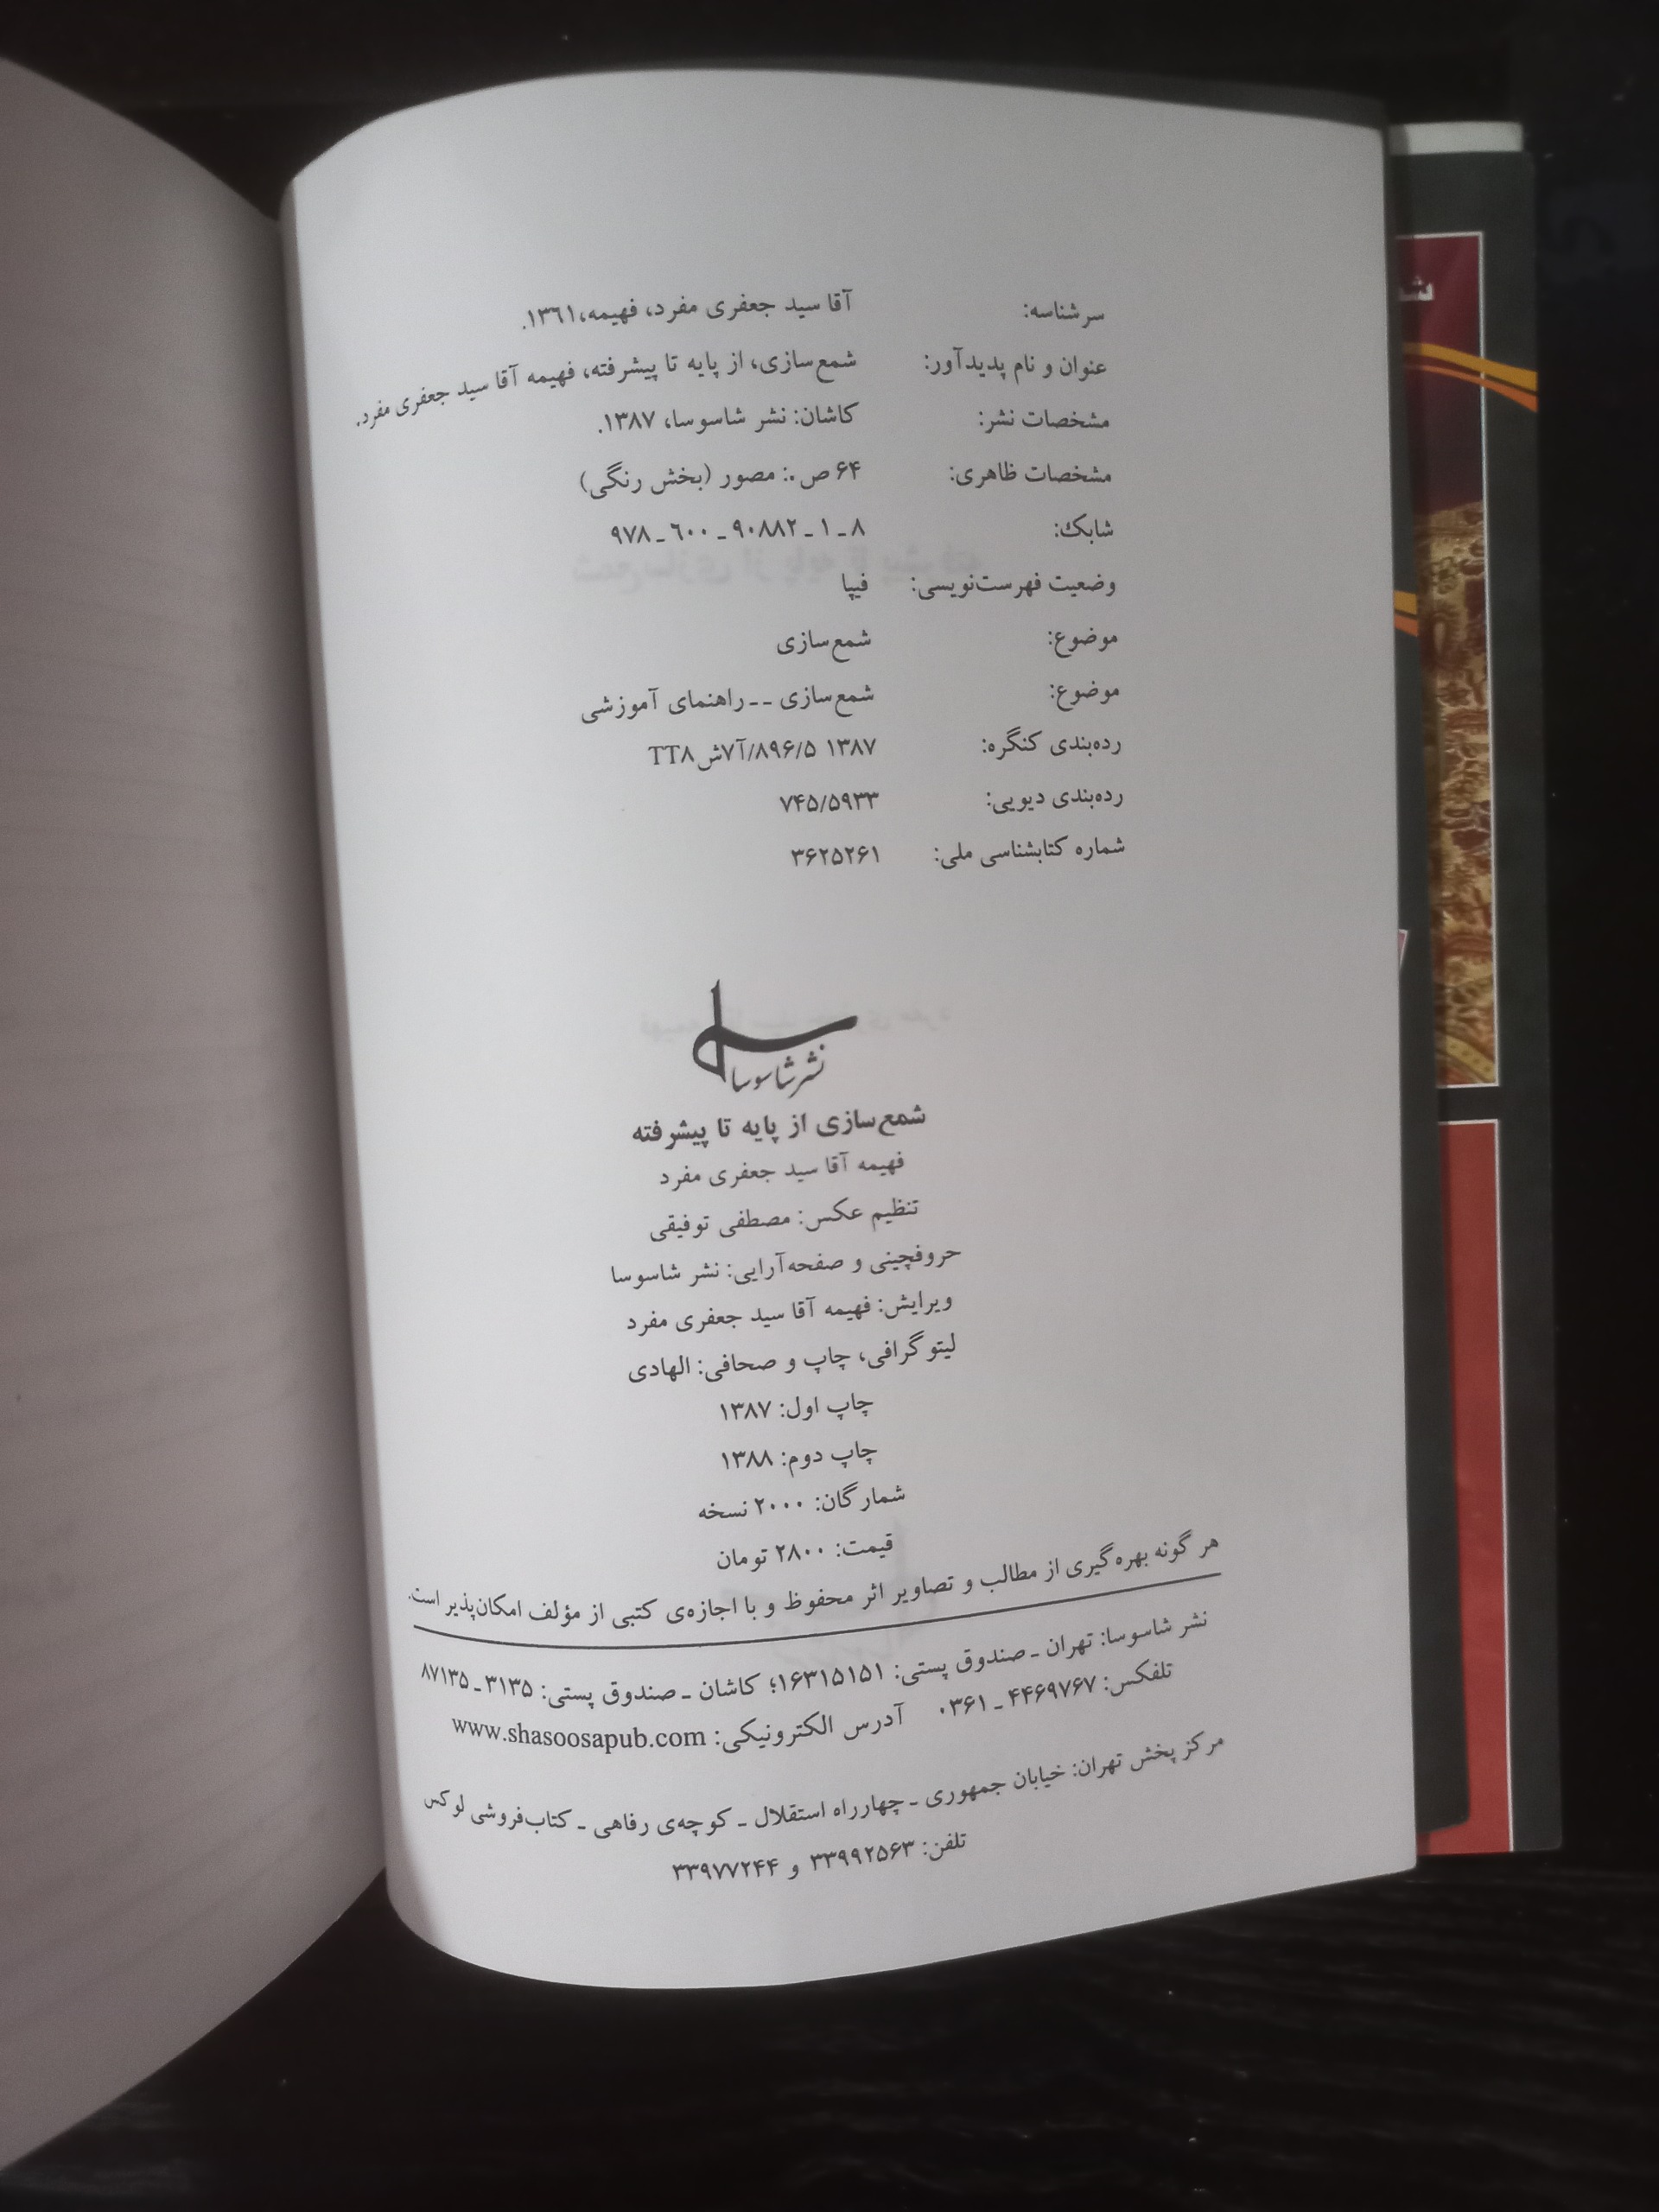 سرشناسه: آقا سید جعفری مفرد، فهیمه،۱۳٦۱.
عنوان و نام پدیدآور: شمع‌سازی، از پایه تا پیشرفته، فهیمه آقا سید جعفری مفرد.
مشخصات نشر: کاشان: نشر شاسوسا، ۱۳۸۷.
مشخصات ظاهری: ۶۴ ص.: مصور (بخش رنگی)
شابک: ۸ ـ ۱ ـ ۹۰۸۸۲ ـ ٦۰۰ ـ ۹۷۸
وضعیت فهرست‌نویسی: فیپا
موضوع: شمع‌سازی
موضوع: شمع‌سازی ـ ـ راهنمای آموزشی
رده‌بندی کنگره: ۱۳۸۷ ۸۹۶/۵/آ۷ش‌TT۸
رده‌بندی دیویی: ۷۴۵/۵۹۳۳
شماره کتابشناسی ملی: ۳۶۲۵۲۶۱
نشر شاسوسا
شمع‌سازی از پایه تا پیشرفته
فهیمه آقا سید جعفری مفرد
تنظیم عکس: مصطفی توفیقی
حروفچینی و صفحه‌آرایی: نشر شاسوسا
ویرایش: فهیمه آقا سید جعفری مفرد
لیتوگرافی، چاپ و صحافی: الهادی
چاپ اول: ۱۳۸۷
چاپ دوم: ۱۳۸۸
شمارگان: ۲۰۰۰ نسخه
قیمت: ۲۸۰۰ تومان
هر گونه بهره‌گیری از مطالب و تصاویر اثر محفوظ و با اجازه‌ی کتبی از مؤلف امکان‌پذیر است.
نشر شاسوسا: تهران ـ صندوق پستی: ۱۶۳۱۵۱۵۱؛ کاشان ـ صندوق پستی: ۳۱۳۵ ـ ۸۷۱۳۵
تلفکس: ۴۴۶۹۷۶۷ ـ ۰۳۶۱ آدرس الکترونیکی: www.shasoosapub.com
مرکز پخش تهران: خیابان جمهوری ـ چهارراه استقلال ـ کوچه‌ی رفاهی ـ کتاب‌فروشی لوکس
تلفن: ۳۳۹۹۲۵۶۳ و ۳۳۹۷۷۲۴۴